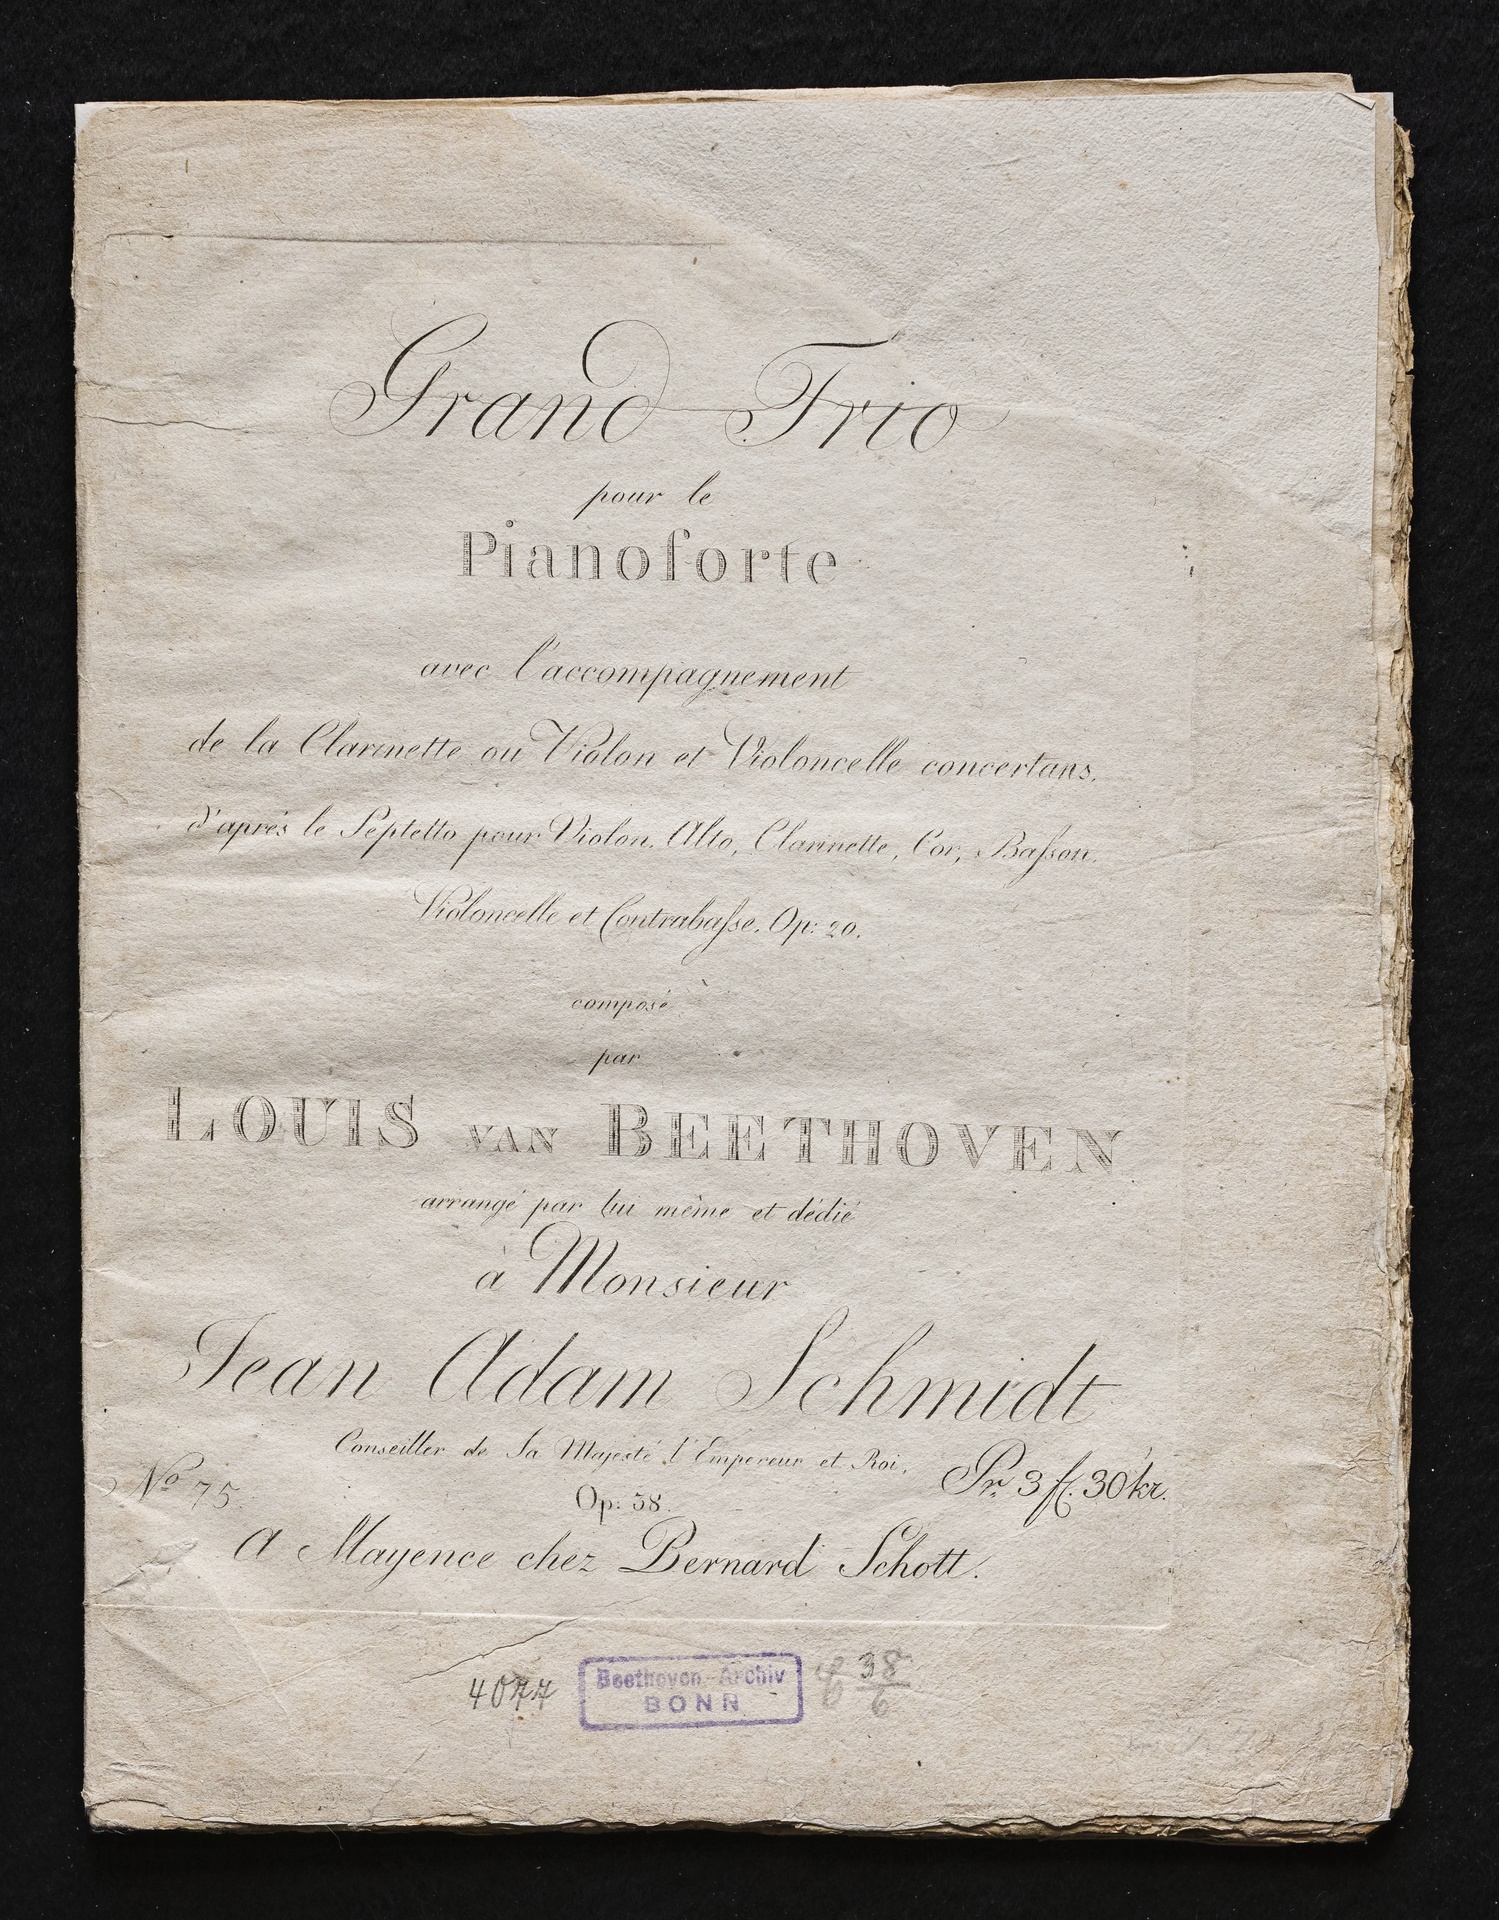 Grand Trio
pour le
Pianoforte
avec l'accompagnement
de la Clarinette ou Violon et Violoncelle concertans.
d'aprés le Septetto pour Violon, Alto, Clarinette, Cor, Baſson,
Violoncelle et Contrabaſse, Op: 20.
composé
par
LOUIS VAN BEETHOVEN
arrangé par lui même et dédié
à Monsieur
Jean Adam Schmidt
Conseiller de Sa Majesté l'Empereur et Roi.
No 75.
Op: 38.
Pr. 3 fl. 30 kr.
A Mayence chez Bernard Schott.
4077
Beethoven-Archiv
BONN
C 38/6